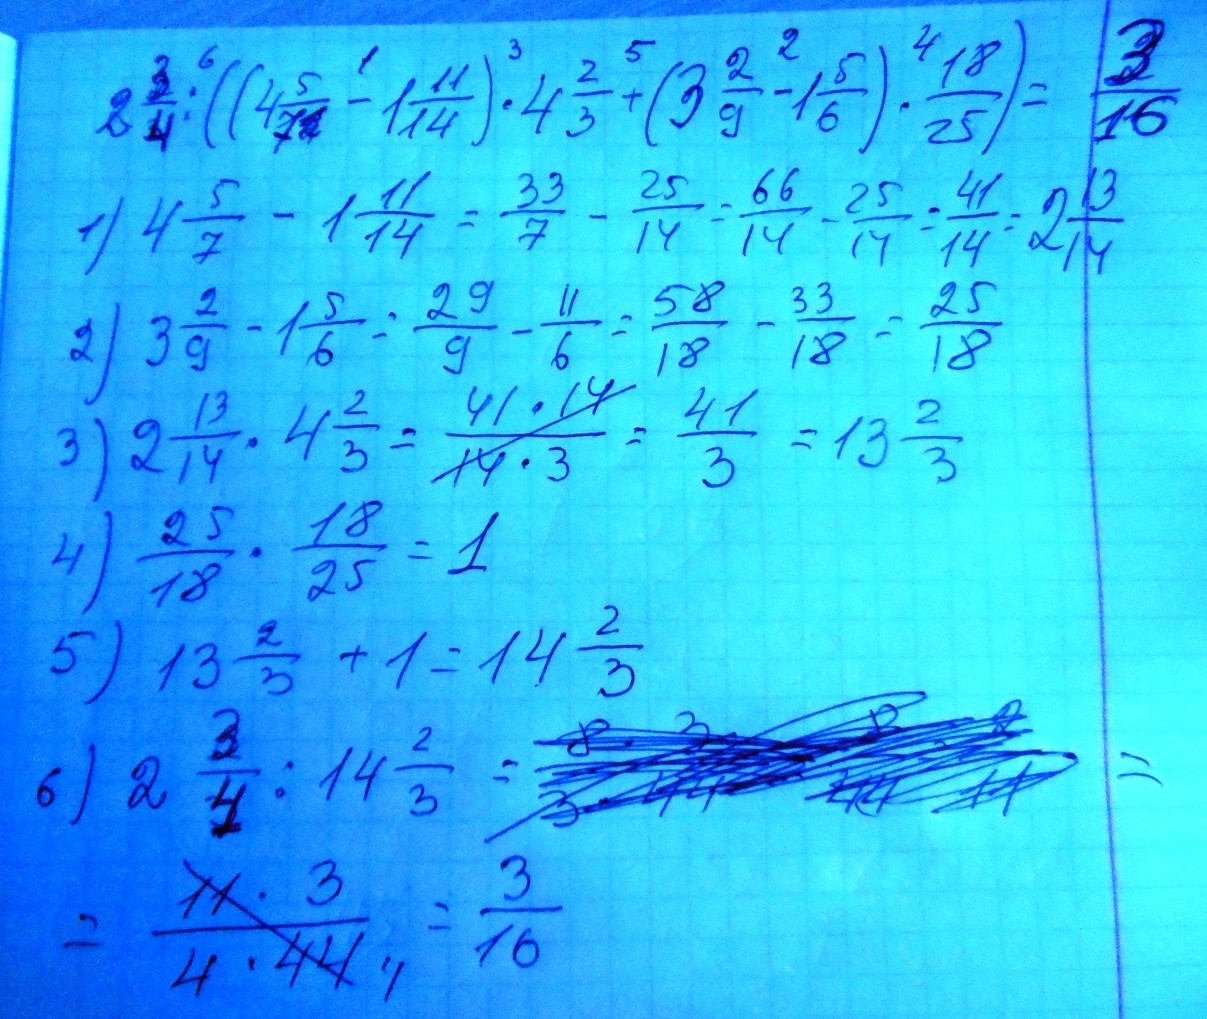 2 3/4 : ((4 5/7 - 1 11/14) · 4 2/3 + (3 2/9 - 1 5/6) · 18/25) = 3/16
1) 4 5/7 - 1 11/14 = 33/7 - 25/14 = 66/14 - 25/14 = 41/14 = 2 13/14
2) 3 2/9 - 1 5/6 = 29/9 - 11/6 = 58/18 - 33/18 = 25/18
3) 2 13/14 · 4 2/3 = 41·14/14·3 = 41/3 = 13 2/3
4) 25/18 · 18/25 = 1
5) 13 2/3 + 1 = 14 2/3
6) 2 3/4 : 14 2/3 = =
= 11·3/4·44 4 = 3/16